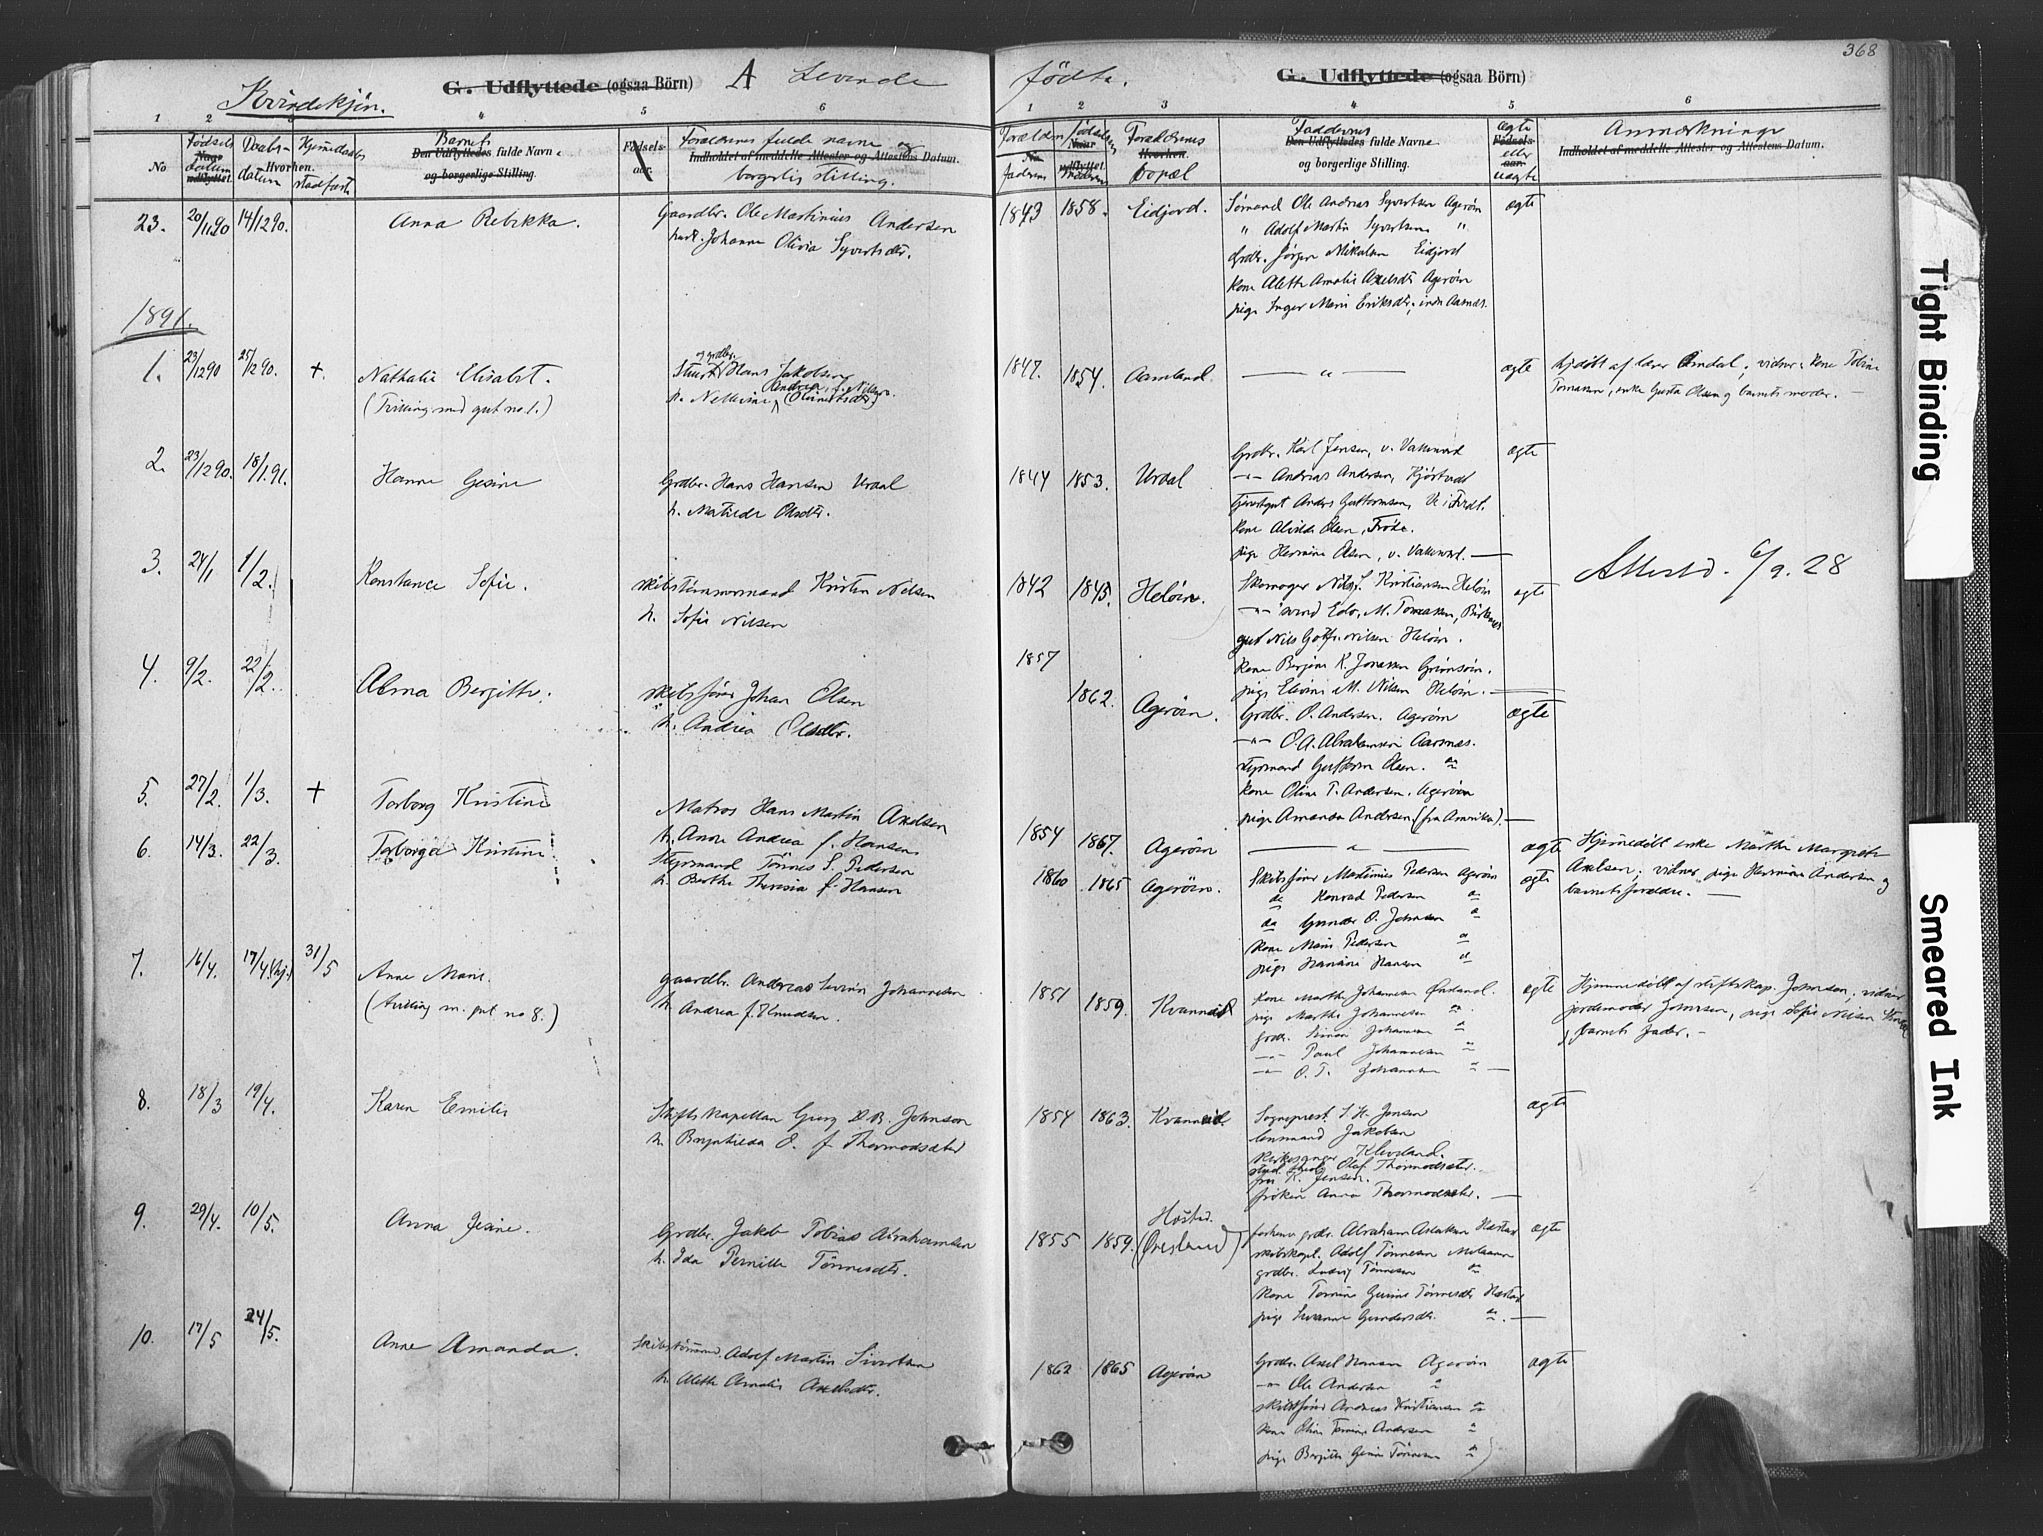 368
Kvindekjøn.
G. Udflyttede (ogsaa Börn)
A Levende
fødte.
G. Udflyttede (ogsaa Börn)
1 2 3 4 5 6
1 2 3 4 5 6
No
Fødsels datum
Daabs-datum
Hvorhen.
Hjemmedøbt
stadfæst
Barnets
Den Udflyttedes fulde Navn
og borgerlige Stilling.
Fødsels-
aar.
Forældrenes fulde navne og
Indholdet af meddelte Attester og Attestens Datum.
borgerlig stilling.
Faderens
Forældrenes
Hvorhen.
bopæl
Faddernes
Den Udflyttedes fulde Navn
og borgerlige Stilling.
ægte
Fødsels-
eller
aar.
uægte
Anmærkninge
Indholdet af meddelte Attester og Attestens Datum.
23. 20/11 90 14/12 90. Anna Rebikka. Gaardbr. Ole Martinius Andersen
Johanne Olivia Syvertsdtr.
1843 1858. Eidjord. Sømand Ole Andreas Syvertsen Agerøin ægte
" Adolf Martin Syvertsen "
Grdbr. Jørgen Mikalsen Eidjord
kone Alette Amalie Axelsdtr Agerøin
pige Inger Marie Eriksdtr, indr Aasnæs.
1891.
1. 23/12 90 25/12 90. + Nathalie Elisabet.
(Tvilling med gut no 1.)
og grdbr.
Hans Jakobsen
h. Nellevine Andrea f. Nilsen
1847. 1854. Aamland. — " — ægte
hjdøbt af lærer Omdal; vidner: kone Tobine
Tomassen, enke Gusta Olsen og barnets moder. —
2. 23/12 90. 18/1 91. Hanne Gesine Grdbr. Hans Hansen Urdal
h. Matilde Olsdtr.
1844 1853. Urdal
Grdbr. Karl Jensen, v. Vallesverd ægte
—"— Andreas Andersen, Kjøstvedt
Tjenestegut Anders Guttormsen, Ve i Fredt.
kone Alvilde Olsen, Frøde.
pige Hermine Olsen, v. Vallesverd. —
3. 24/1 1/2. Konstance Sofie. skibstømmermand Kristen Nilsen
h. Sofie Nilsen
1842 1845. Heløin.
Skomager Nils J. Kristiansen Heløin ægte
—"— svend Edv. M. Tomassen, Birkenes
gut Nils Gotfr. Nilsen Heløin.
kone Berjine K. Jonassen Grimsøin.
pige Elevine M. Nilsen Heløin. —
Attestd. 6/9. 28
4. 9/2. 22/2. Alma Bergitte. skibsfører Johan Olsen
h. Andrea Olsdtr.
1857 1862. Agerøin.
Grdbr. O. Andersen. Agerøin ægte
—"— O. A. Abrahamsen Aasnæs.
styrmand Guttorm Olsen. "
kone Oline T. Andersen. Agerøin
pige Amanda Andersen (fra Amerika). —
5. 27/2. 1/3. + Torborg Kristine Matros Hans Martin Axelsen
h. Anne Andrea f. Hansen
1854 1867. Agerøin — " — ægte
Hjemmedøbt enke Marthe Margrete
Axelsen; vidner, pige Hermine Andersen og
barnets forældre. —
6. 14/3. 22/3. Torborg Kristine Styrmand Tønnes S. Pedersen
h. Berthe Theresia f. Hansen
1860 1865 Agerøin.
Skibsfører Martinius Pedersen Agerøin ægte
do Konrad Pedersen "
do Gunder O. Johnsen "
kone Marie Pedersen "
pige Hansine Hansen "
7. 16/4. 17/4 (hj.) 31/5 Anne Marie.
(tvilling m. gut no 8.)
gaardbr. Andreas Severin Johannesen
h. Andrea f. Knudsen.
1851 1859. Kvanneid
kone Marthe Johannesen Øresland. ægte
pige Marthe Johannesen "
grdbr. Simon Johannesen "
—"— Paul Johannesen "
—"— O. T. Johannesen " —
Hjemmedøbt af stiftskap. Johnsen; vidner
jordemoder Johnsen, pige Sofie Nilsen
og barnets fader. —
8. 18/3 19/4. Karen Emilie Stiftskapellan Georg D. B. Johnson
h. Brynhilda O. f. Thormodsæter
1854 1863. Kvanneid
Sogneprest S. H. Jensen ægte
lensmand Jakobsen
kirkesanger Kleveland.
stud. theol. Olaf Thormodsæter.
fru K. Jensen.
frøken Anna Thormodsæter. —
9. 29/4. 10/5. Anna Jesine. Grdbr. Jakob Tobias Abrahamsen
h. Ida Pernille Tønnesdtr.
1855 1859. Høstad.
(Øresland)
forhenv. grdbr. Abraham Aslaksen Høstad ægte
skibskapt. Adolf Tønnesen
grdbr. Ludvig Tønnesen "
kone Tomine Gurine Tønnesdtr Høstad
pige Susanne Gundersdtr. " —
10. 17/5 24/5. Anne Amanda. skibstømmerm. Adolf Martin Sivertsen
h. Alette Amalie Axelsdtr.
1862 1865 Agerøin
Grdbr. Axel Hansen Agerøin ægte
—"— Ole Andersen "
skibsfører Andreas Kristiansen "
kone Oline Tomine Andersen "
pige Bergitte Gurine Tønnesen "
Tight Binding
Smeared Ink